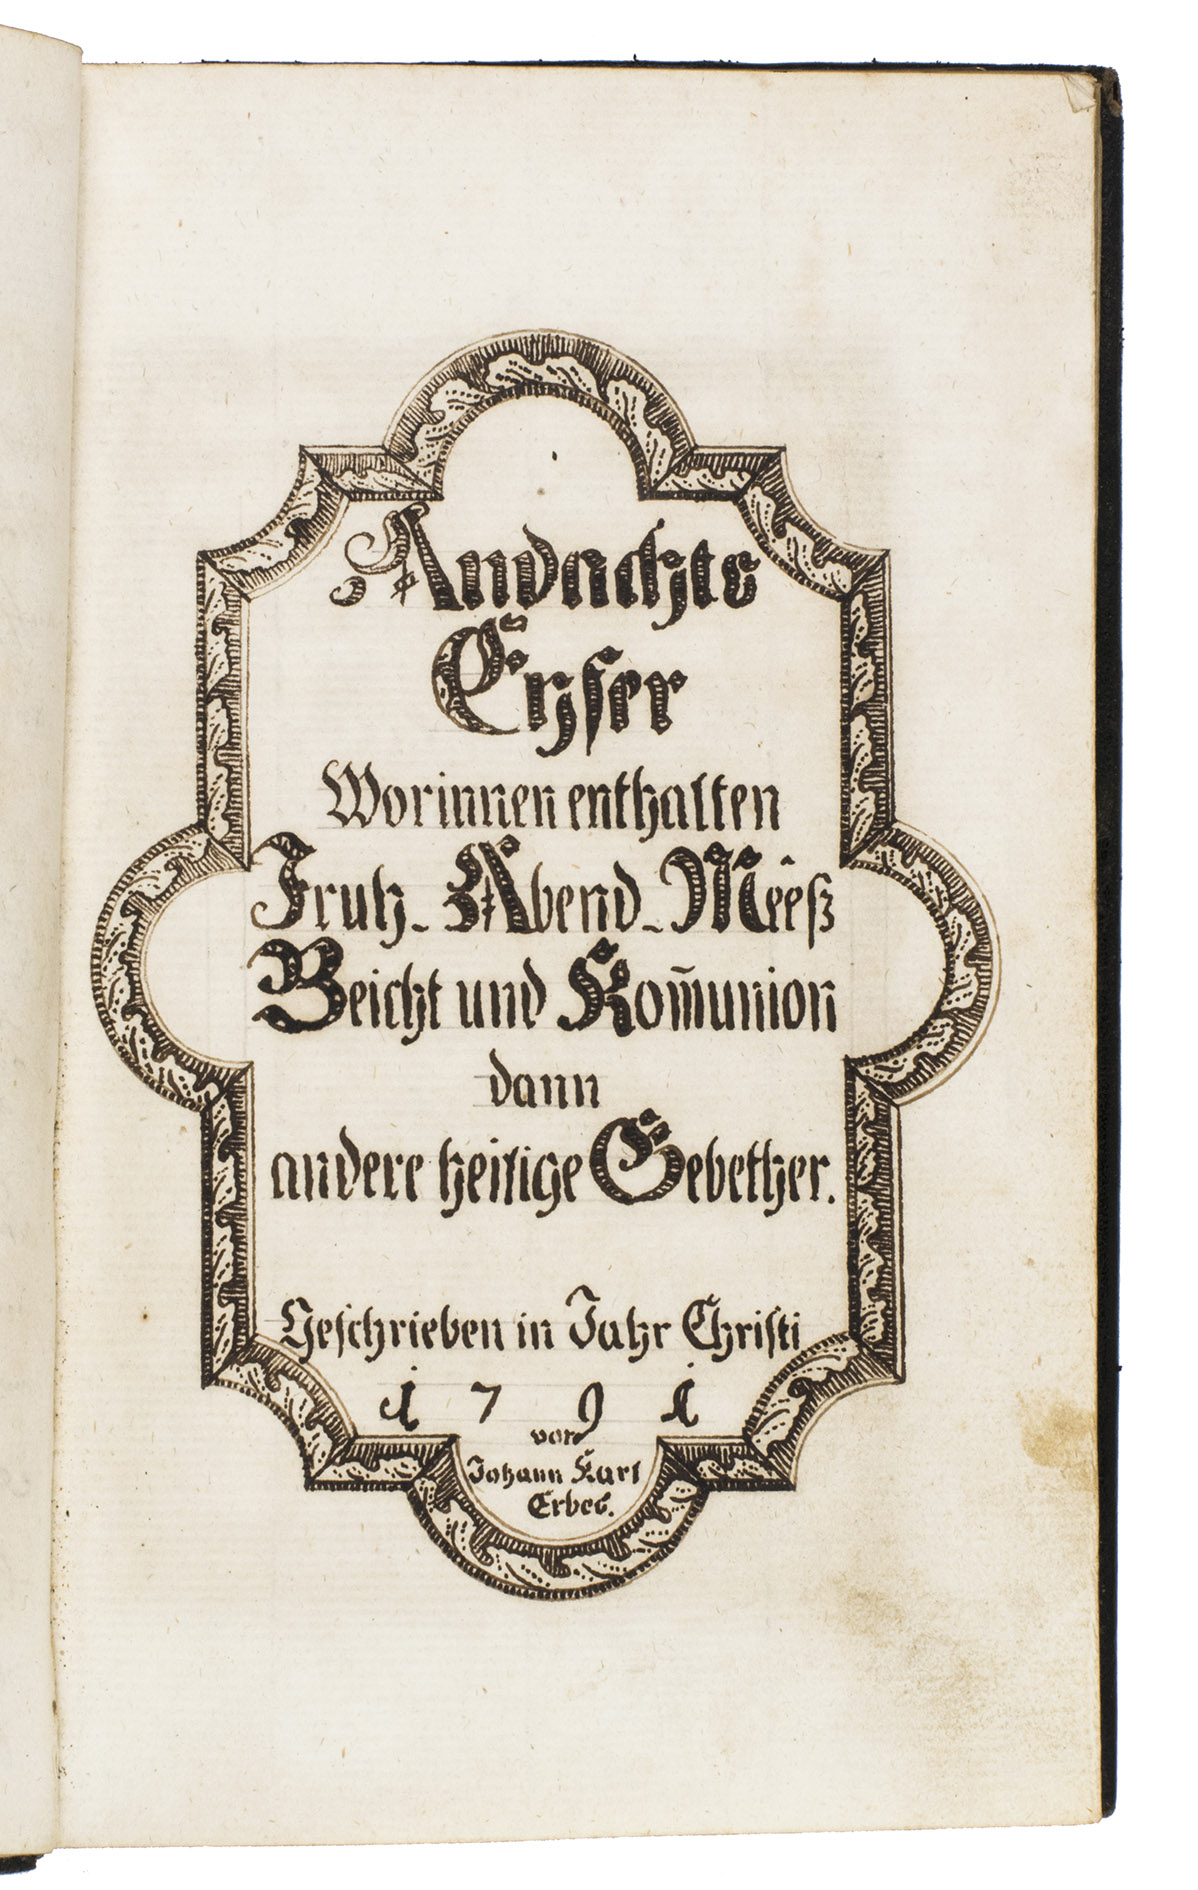 Andachts
Eyfer
Worinnen enthalten
Fruh- Abend- Mêêß
Beicht und Kom̄union
dann
andere heilige Gebether.
Geschrieben in Jahr Christi
1791
von
Johann Karl
Erbes.